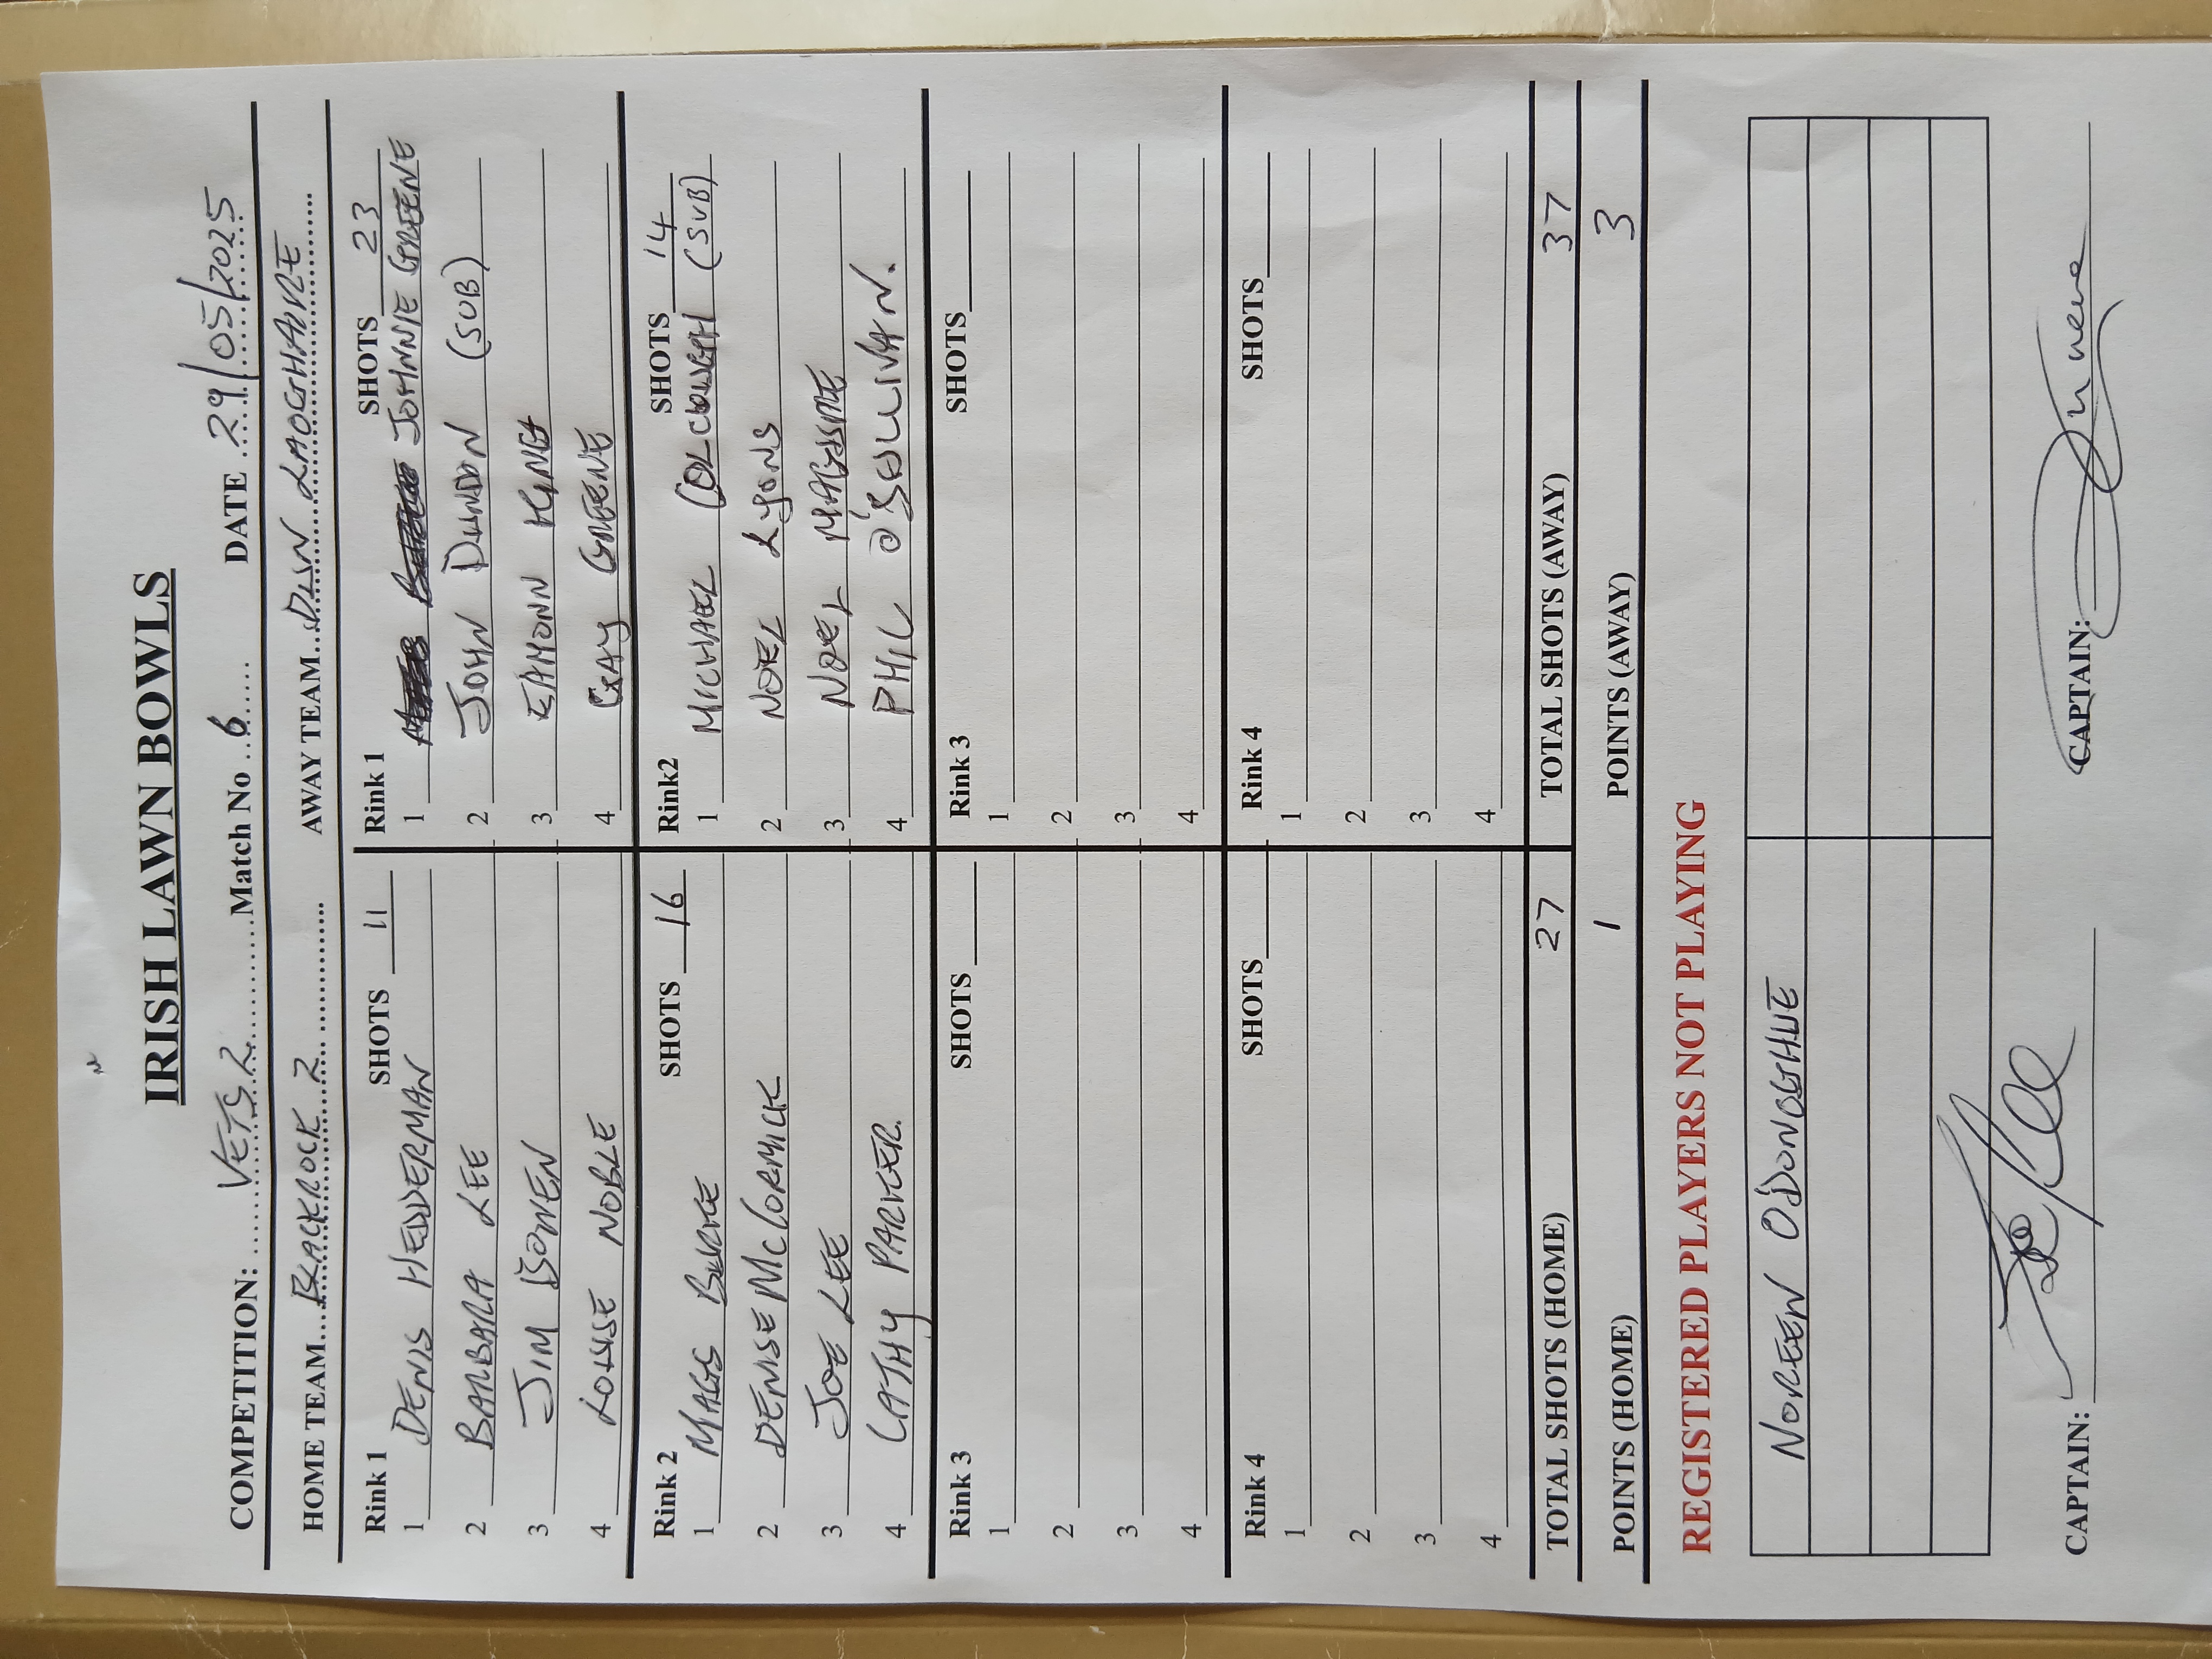 IRISH LAWN BOWLS
COMPETITION: VETS 2 Match No 6 DATE 29/05/2025
HOME TEAM BLACKROCK 2 AWAY TEAM DUN LAOGHAIRE
Rink 1 SHOTS 11 Rink 1 SHOTS 23
1 DENIS HEDDERMAN 1 JOHNNIE GREENE
2 BARBARA LEE 2 JOHN DUNDON (SUB)
3 JIM BOWEN 3 EAMONN KING
4 LOUISE NOBLE 4 GAY GREENE
Rink 2 SHOTS 16 Rink2 SHOTS 14
1 MAGS BURKE 1 MICHAEL COLCLOUGH (SUB)
2 DENISE McCORMICK 2 NOEL LYONS
3 JOE LEE 3 NOEL MAGUIRE
4 CATHY PARKER. 4 PHIL O'SULLIVAN.
Rink 3 SHOTS Rink 3 SHOTS
1 1
2 2
3 3
4 4
Rink 4 SHOTS Rink 4 SHOTS
1 1
2 2
3 3
4 4
TOTAL SHOTS (HOME) 27 TOTAL SHOTS (AWAY) 37
POINTS (HOME) 1 POINTS (AWAY) 3
REGISTERED PLAYERS NOT PLAYING
NOREEN O'DONOGHUE
CAPTAIN: Joe Lee CAPTAIN: